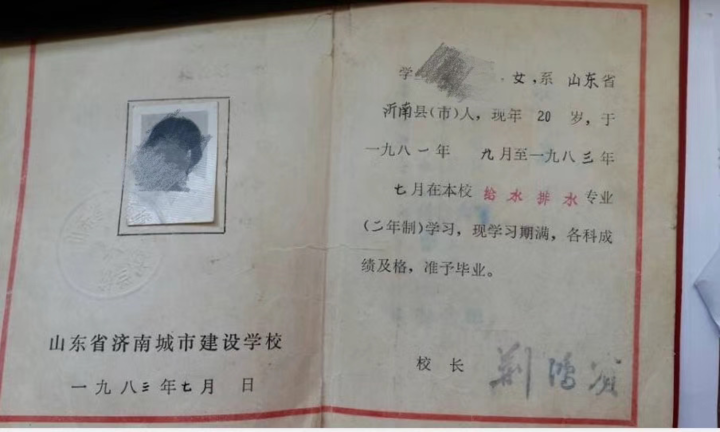 山东省济南城市建设学校
一九八三年七月 日
学 女,系 山东省
沂南县(市)人,现年 20 岁,于
一九八一年 九月至一九八三年
七月在本校 给水排水 专业
(二年制)学习,现学习期满,各科成
绩及格,准予毕业。
校 长